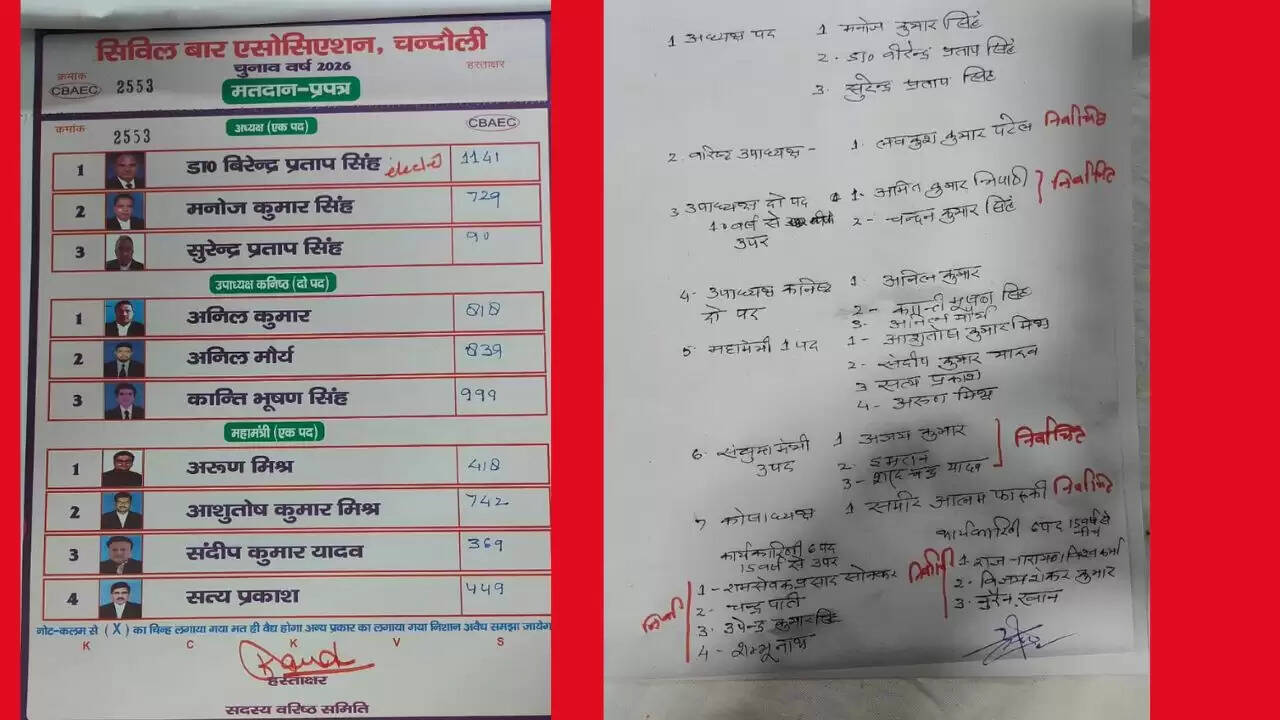 सिविल बार एसोसिएशन, चन्दौली
चुनाव वर्ष 2026
क्रमांक
हस्ताक्षर
CBAEC 2553
मतदान-प्रपत्र
क्रमांक 2553
अध्यक्ष (एक पद)
CBAEC
1 डा० बिरेन्द्र प्रताप सिंह elected 1141
2 मनोज कुमार सिंह 729
3 सुरेन्द्र प्रताप सिंह 90
उपाध्यक्ष कनिष्ठ (दो पद)
1 अनिल कुमार 818
2 अनिल मौर्य 839
3 कान्ति भूषण सिंह 999
महामंत्री (एक पद)
1 अरूण मिश्र 418
2 आशुतोष कुमार मिश्र 742
3 संदीप कुमार यादव 369
4 सत्य प्रकाश 449
नोट-कलम से (X) का चिन्ह लगाया गया मत ही वैद्य होगा अन्य प्रकार का लगाया गया निशान अवैध समझा जायेगा
K C K V S
हस्ताक्षर
सदस्य वरिष्ठ समिति
1 अध्यक्ष पद 1 मनोज कुमार सिंह
2. डा० वीरेन्द्र प्रताप सिंह
3. सुरेन्द्र प्रताप सिंह
2. वरिष्ठ उपाध्यक्ष - 1. लवकुश कुमार पटेल निर्वाचित
3 उपाध्यक्ष दो पद 1- अमित कुमार त्रिपाठी निर्वाचित
10 वर्ष से उपर 2- चन्दन कुमार सिंह
4- उपाध्यक्ष कनिष्ठ 1- अनिल कुमार
दो पद 2- कान्ती भूषण सिंह
3- अनिल मौर्य
5. महामंत्री 1 पद 1- आशुतोष कुमार मिश्र
2- संदीप कुमार यादव
3 सत्य प्रकाश
4- अरुण मिश्र
6- संयुक्त मंत्री 1 अजय कुमार निर्वाचित
3 पद 2- इमरान
3- शरद चन्द्र यादव
7 कोषाध्यक्ष 1 समीर आलम फारूकी निर्वाचित
कार्यकारिणी 6 पद
15 वर्ष से उपर
निर्वा
1- रामसेवक प्रसाद सोनकर
2- चन्द्र पाती
3. उपेन्द्र कुमार सिंह
4- शम्भू नाथ
कार्यकारिणी 6 पद 15 वर्ष से नीचे
निर्वाचित
1- राज नारायण विश्वकर्मा
2- विजय शंकर कुमार
3- खान